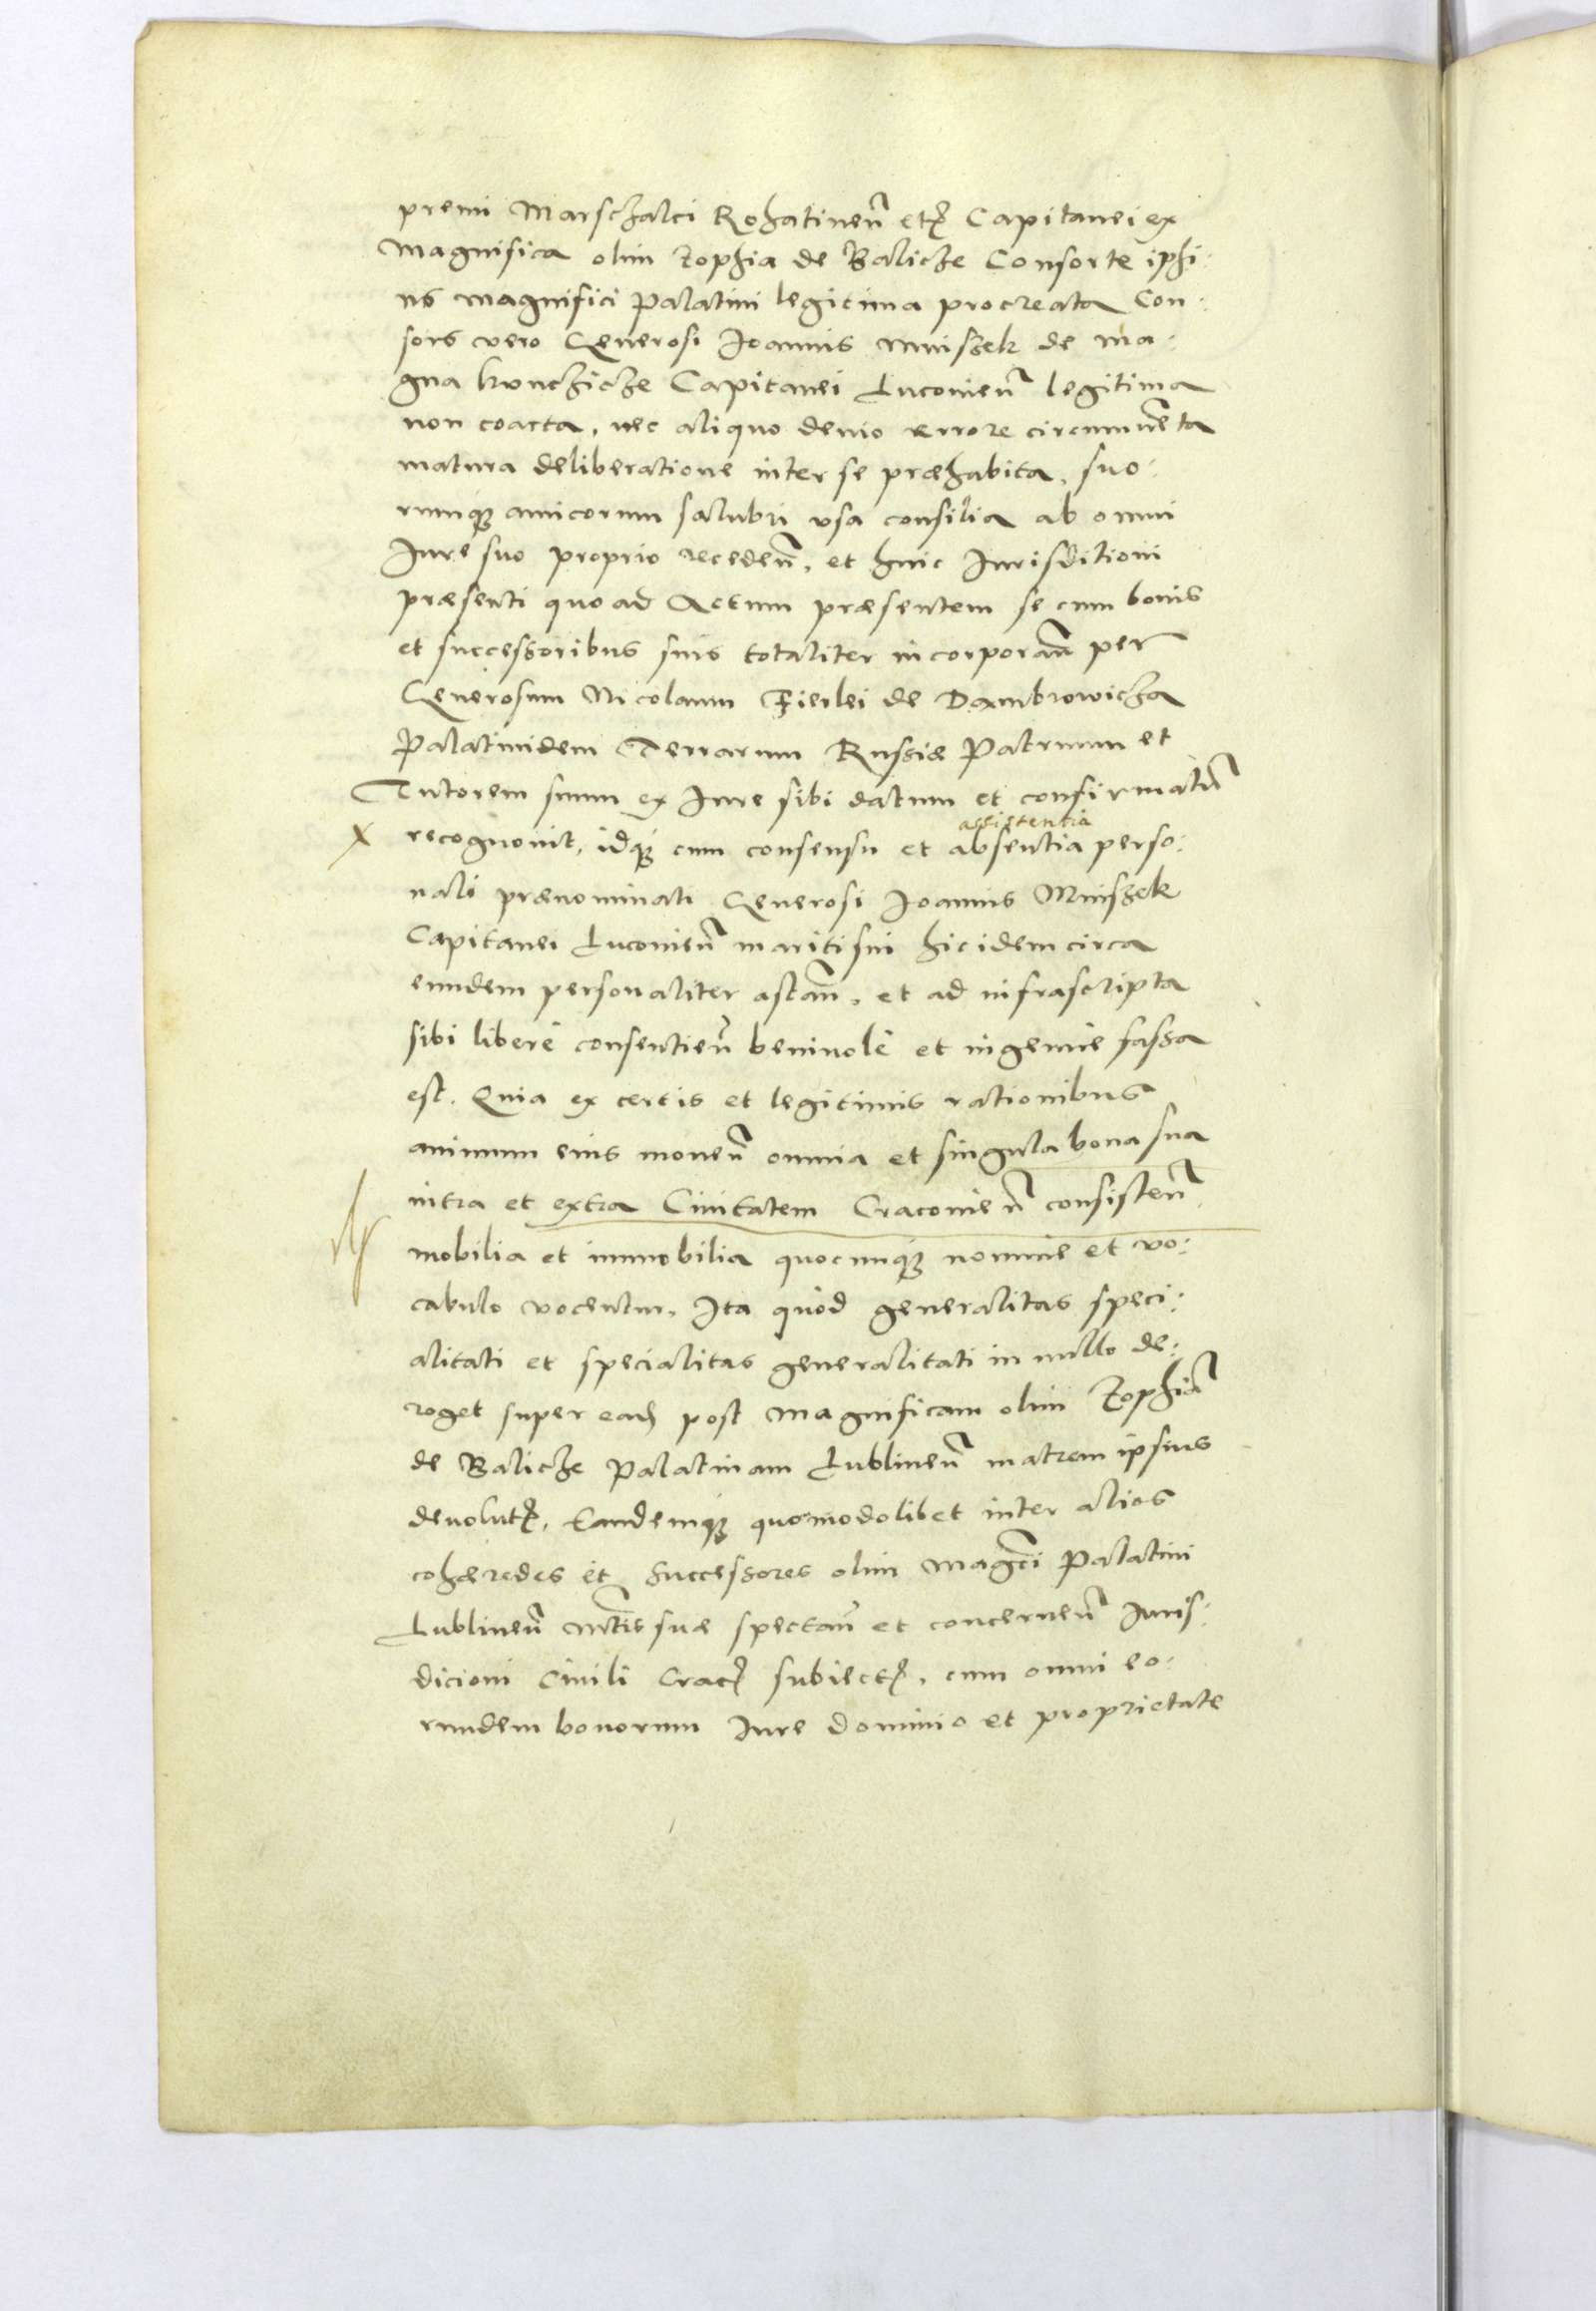 premi Marschalci Rohatineñ etꝫ Capitanei ex
magnifica olim Zophia de Baliche Consorte ipsi:
us magnifici Palatini legitima procreata Con:
sors vero Generosi Joannis Mniszek de ma:
gna kunchiche Capitanei Luconieñ legitima
non coacta, nec aliquo devio errore circumuẽta
matura deliberatione inter se præhabita, suo:
rumqꝫ amicorum salubri usa consilia ab omni
Jure suo proprio recedeñ, et huic Jurisditioni
præsenti quo ad Actum præsentem se cum bonis
et successoribus suis totaliter incorporañ per
Generosum Nicolaum Fierlei de Dambrowicza
Palatinidem Terrarum Russiæ Patruum et
Tutorem suum ex Jure sibi datum et confirmatũ
assistentia
x recognovit, idqꝫ cum consensu et absentia perso:
nali prænominati Generosi Joannis Mniszek
Capitanei Luconieñ mariti sui hic idem circa
eundem personaliter astañ, et ad infrascripta
sibi liberè consentieñ benivolè et ingenue fassa
est. Quia ex certis et legitimis rationibus
animum eius moueñ omnia et singula bona sua
intra et extra Civitatem Cracovieñ consisteñ
mobilia et immobilia quocunqꝫ nomine et vo:
cabulo vocentur, Ita quod generalitas speci:
alitati et specialitas generalitati in nullo de:
roget super eadꝫ post magnificam olim Zophiã
de Baliche Palatinam Lublineñ matrem ipsius
devolutꝫ, tandemqꝫ quomodolibet inter alios
cohæredes et successores olim magci Palatini
Lublineñ Mtis suæ spectañ et concerneñ Juris:
dicioni Civili Cracꝫ subiectꝫ, cum omni eo:
rundem bonorum Jure dominio et proprietate